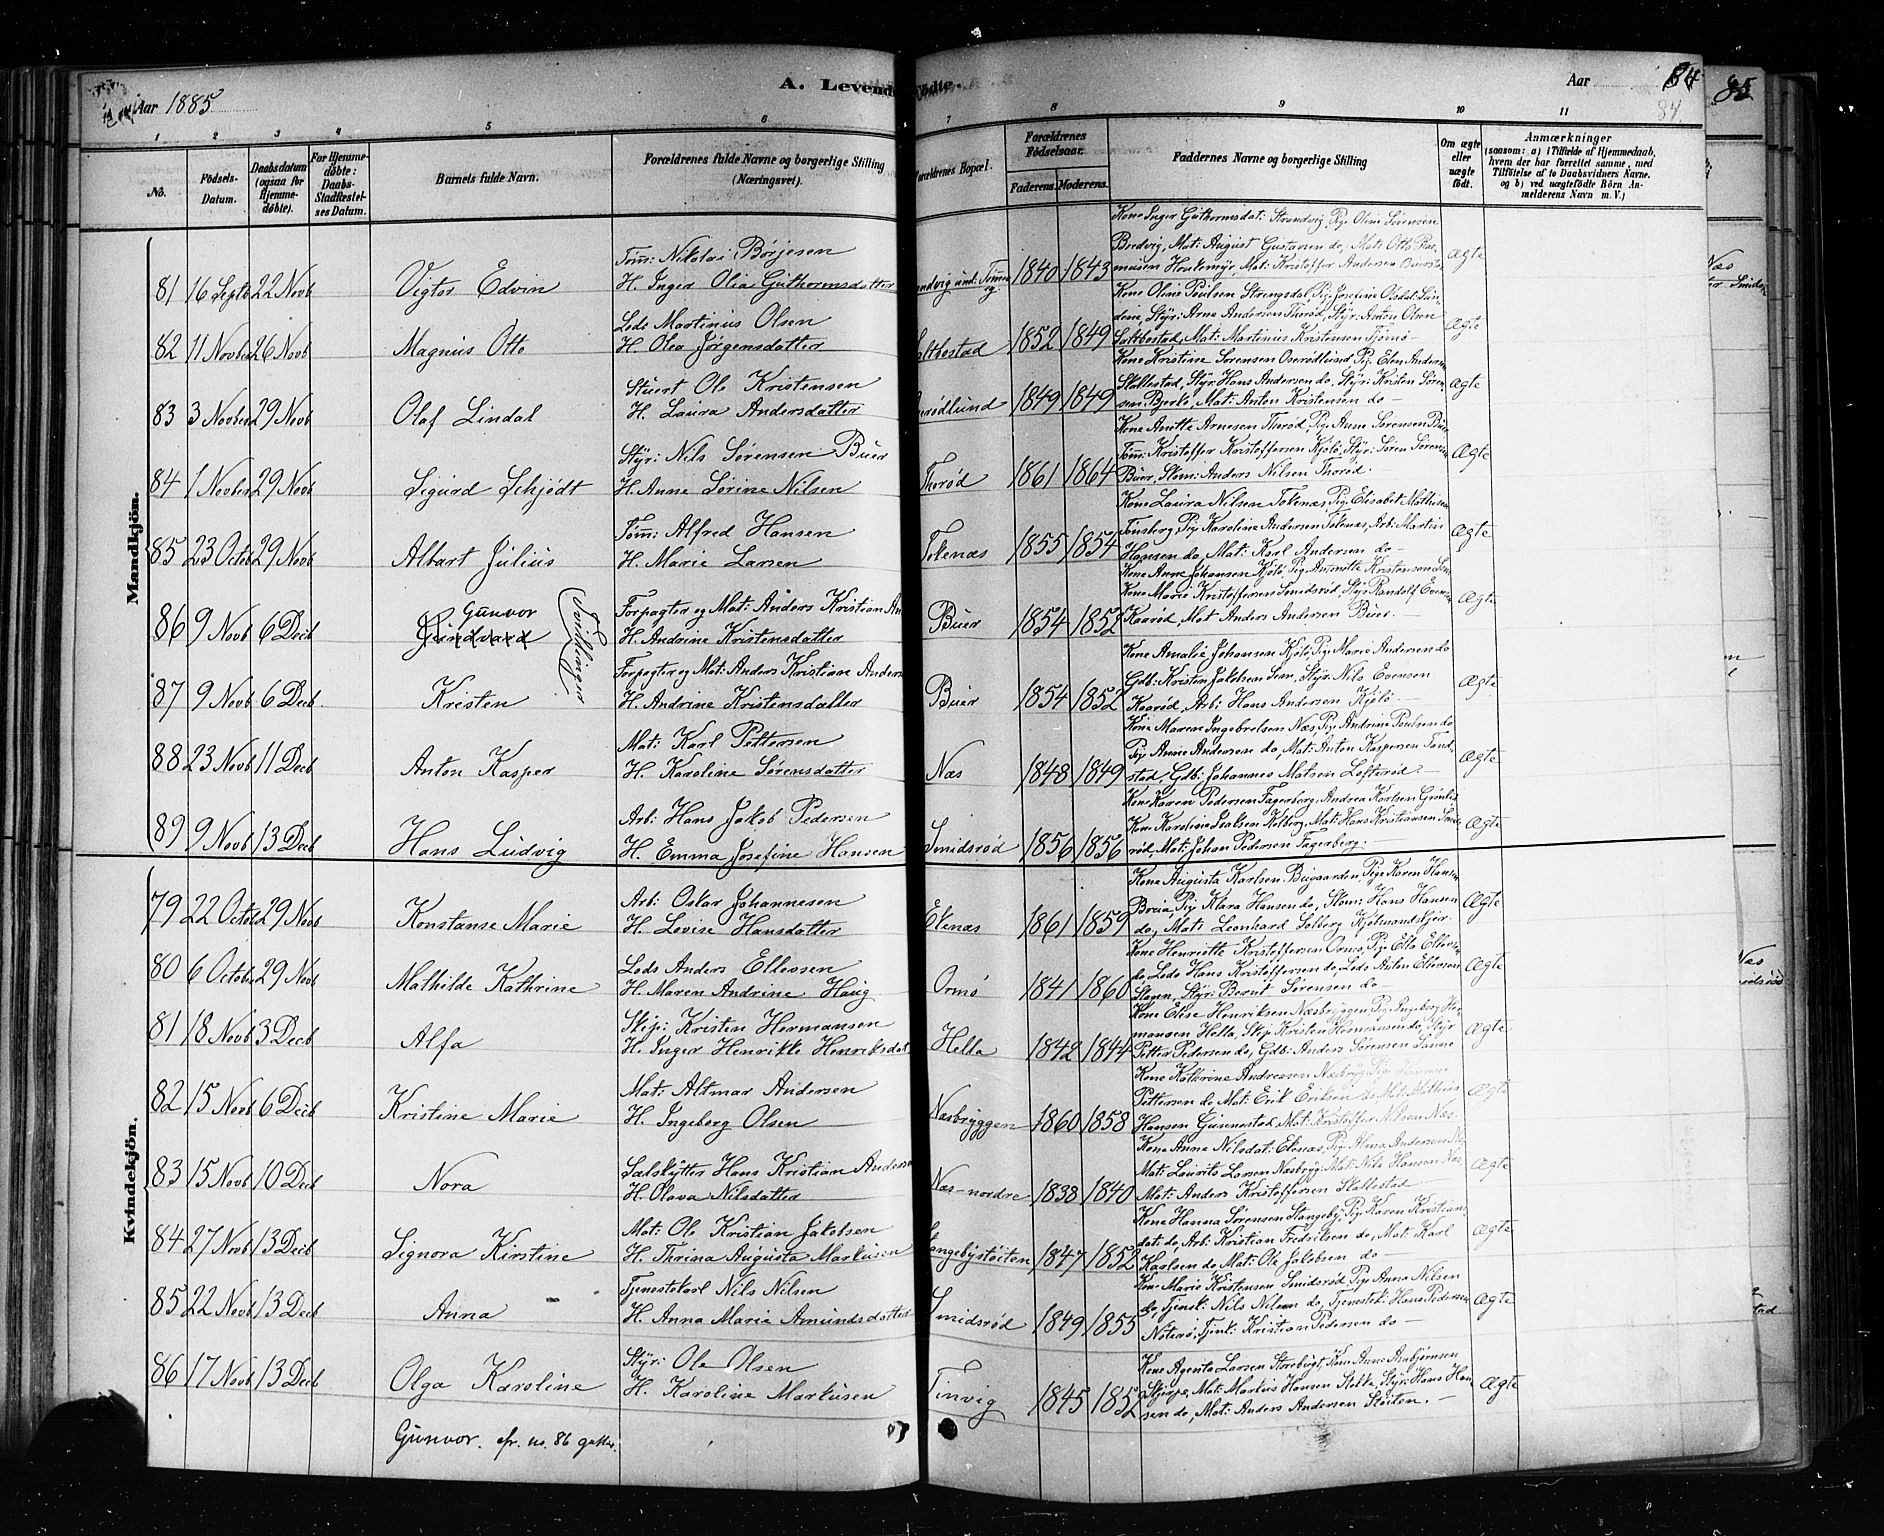 Aar 1885
A. Levende Fødte.
Aar
84
84.
85
1 2 3 4 5 6 7 8 9 10 11
No.
Födsels-Datum.
Daabsdatum (ogsaa for Hjemmedøbte).
For Hjemmedøbte: Daabs-Stadfæstelses Datum.
Barnets fulde Navn.
Forældrenes fulde Navne og borgerlige Stilling (Næringsvei).
Forældrenes Bopæl.
Forældrenes Födselsaar.
Faderens. Moderens.
Faddernes Navne og borgerlige Stilling
Om ægte eller uægte födt.
Anmærkninger
(saasom: a) i Tilfælde af Hjemmedaab, hvem der har forrettet samme, med Tilföielse af to Daabsvidners Navne. og b) ved uægtefödte Börn Anmelderens Navn m. V.)
Mandkjön.
81 16 Septb 22 Novb Vigtor Edvin
Tøm: Nikolai Børjesen
H. Inger Olia Guthormsdatter
1840 1843
Kone Inger Guthormsdat: Strandvig, Pig: Oline Sørensen
Bredvig, Mat: August Gustavsen do, Mat: Otto Ras-
Ægte
82 11 Novber 26 Novb Magnus Otto
Lods Martinius Olsen
H. Olea Jørgensdatter
altbostad 1852 1849
dene, Styr: Arne Andersen Thorød, Styr: Anton Olsen
Saltbostad, Mat: Martinus Kristensen Tjømø
Ægte
83 3 Novber 29 Novb Olaf Lindal
Stuert Ole Kristensen
H. Laura Andersdatter
rødlund 1849 1849
Skallestad, Styr: Hans Andersen do, Styr: Kristen Søren-
sen Bjerkø, Mat: Anton Kristensen do
Ægte
84 1 Novber 29 Novb Sigurd Schjödt
Styr: Nils Sørensen Buer
H. Anne Sørine Nilsen
Thorød 1861 1864
Kone Anette Arnesen Thorød, Pig: Anne Sørensen Buer
Tøm: Kristoffer Kristoffersen Kjölö, Styr: Søren Sørensen
Buer, Skom: Anders Nilsen Thorød.
Ægte
85 23 Octob 29 Novb Albart Julius
Tøm: Alfred Hansen
H. Marie Larsen
Tokenæs 1855 1854
Kone Laura Nilsen Tokenæs, Pig: Elisabet Mathisen
Tønsberg, Pig: Karoline Andersen Tokenæs, Arb: Martin
Hansen do, Mat: Karl Andersen do
Ægte
86 9 Novb 6 Decb Gunvor
Gundvard
Tvillinger
Forpagter og Mat: Anders Kristian An
H. Andrine Kristensdatter
Buer 1854 1852
Kone Marie Kristoffersen Smidsrød, Styr: Randolf Evensen
Kaarød, Mat: Anders Andersen Buer.
Ægte
87 9 Novb 6 Decb. Kristen
Forpagter og Mat: Anders Kristian Anders
H. Andrine Kristensdatter
Buer 1854 1852
Kone Amalie Johansen Kjölö, Pig: Marie Andersen do
Gdb: Kristen Jakobsen Sem, Styr: Nils Evensen
Kaarød, Arb: Hans Andersen Kjölö
Ægte
88 23 Novb 11 Decb Anton Kasper
Mat: Karl Pettersen
H. Karoline Sørensdatter
Næs 1848 1849
Kone Maren Ingebretsen Næs, Pig: Andrine Poulsen do
Pig: Anne Andersen do, Mat: Anton Kaspersen Tand-
stad, Gdb: Johannes Matsen Lofterød.
Ægte
89 9 Novb 13 Decb Hans Ludvig
Arb: Hans Jakob Pedersen
H. Emma Josefine Hansen
Smidsrød 1856 1856
Kone Karen Pedersen Fagerberg, Andrea Karlsen
rød, Mat: Johan Pedersen Fagerberg.
Ægte
Kvindekjön.
79 22 Octob 29 Novb Konstanse Marie
Arb: Oskar Johannesen
H. Lovise Hansdatter
Ekenæs 1861 1859
Kone Augusta Karlsen Bugaarden, Pige Karen Hansen
Breia, Pig: Klara Hansen do, Skom: Hans Hansen
do, Mat: Leonhard Solberg Kjøbmandskjær.
Ægte
80 6 October 29 Novb Mathilde Kathrine
Lods Anders Ellevsen
H. Maren Andrine Haug
Ormø 1841 1860
Kone Henriette Kristoffersen Ormø, Pig:
do, Lods Hans Kristoffersen do, Lods Anton Ellevsen
Stagen, Styr: Bernt Sørensen do
Ægte
81 18 Novb 3 Decb Alfa
Skip: Kristen Hermansen
H. Inger Henrikke Henriksdat
Hella 1842 1844
Kone Elise Henriksen Næsbryggen, Pig: Ingeborg Her-
mansen Hella, Skip: Kristen Hermansen do, Styr:
Petter Pedersen do, Gdb: Anders Sørensen
Ægte
82 15 Novb 6 Decb Kristine Marie
Mat: Altmar Andersen
H. Ingeborg Olsen
Næsbryggen 1860 1858
Kone Kathrine Andreasen Næsbryg, Pig:
Pettersen do, Mat: Erik Eriksen do, Mat: Mathias
Hansen Gunnestad, Mat: Kristoffer Næs.
Ægte
83 15 Novb 10 Decb Nora
Sælskytter Hans Kristian Anders
H. Olava Nilsdatter
Næs-nordre 1838 1840
Kone Anne Nilsdat: Ekenæs, Pig: Alma Andersen
Mat: Laurits Larsen Næsbryg, Mat: Nils Hansen Næs,
Mat: Anders Kristoffersen Skallestad
Ægte
84 27 Novb 13 Decb Signora Kirstine
Mat: Ole Kristian Jakobsen
H. Thrina Augusta Markusen
angebystøiten 1847 1852
Kone Hanna Sørensen Stangeby, Pig: Karen Kristian
dat: do, Arb: Kristian Fredriksen do, Mat: Karl
Karlsen do, Mat: Ole Jakobsen do
Ægte
85 22 Novb 13 Decb Anna
Tjenestekarl Nils Nilsen
H. Anna Marie Amundsdatter
Smidsrød 1849 1855
Kone Marie Kristensen Smidsrød, Pige Anna Nilsen
do, Tjenstk: Nils Nilsen do, Tjenestek: Hans Pedersen
Noterø, Tjenk: Kristian Pedersen do
Ægte
86 17 Novb 13 Decb Olga Karoline
Styr: Ole Olsen
H. Karoline Markusen
Tinvig 1845 1852
Kone Agenta Larsen Storebugt, Kone Anne Arnbjørnsen
Skjerpe, Mat: Markus Hansen Stokke, Styr: Hans Han
sen do, Mat: Anders Andersen Støiten.
Ægte
Gunvor. cfr. no. 86 gutter.